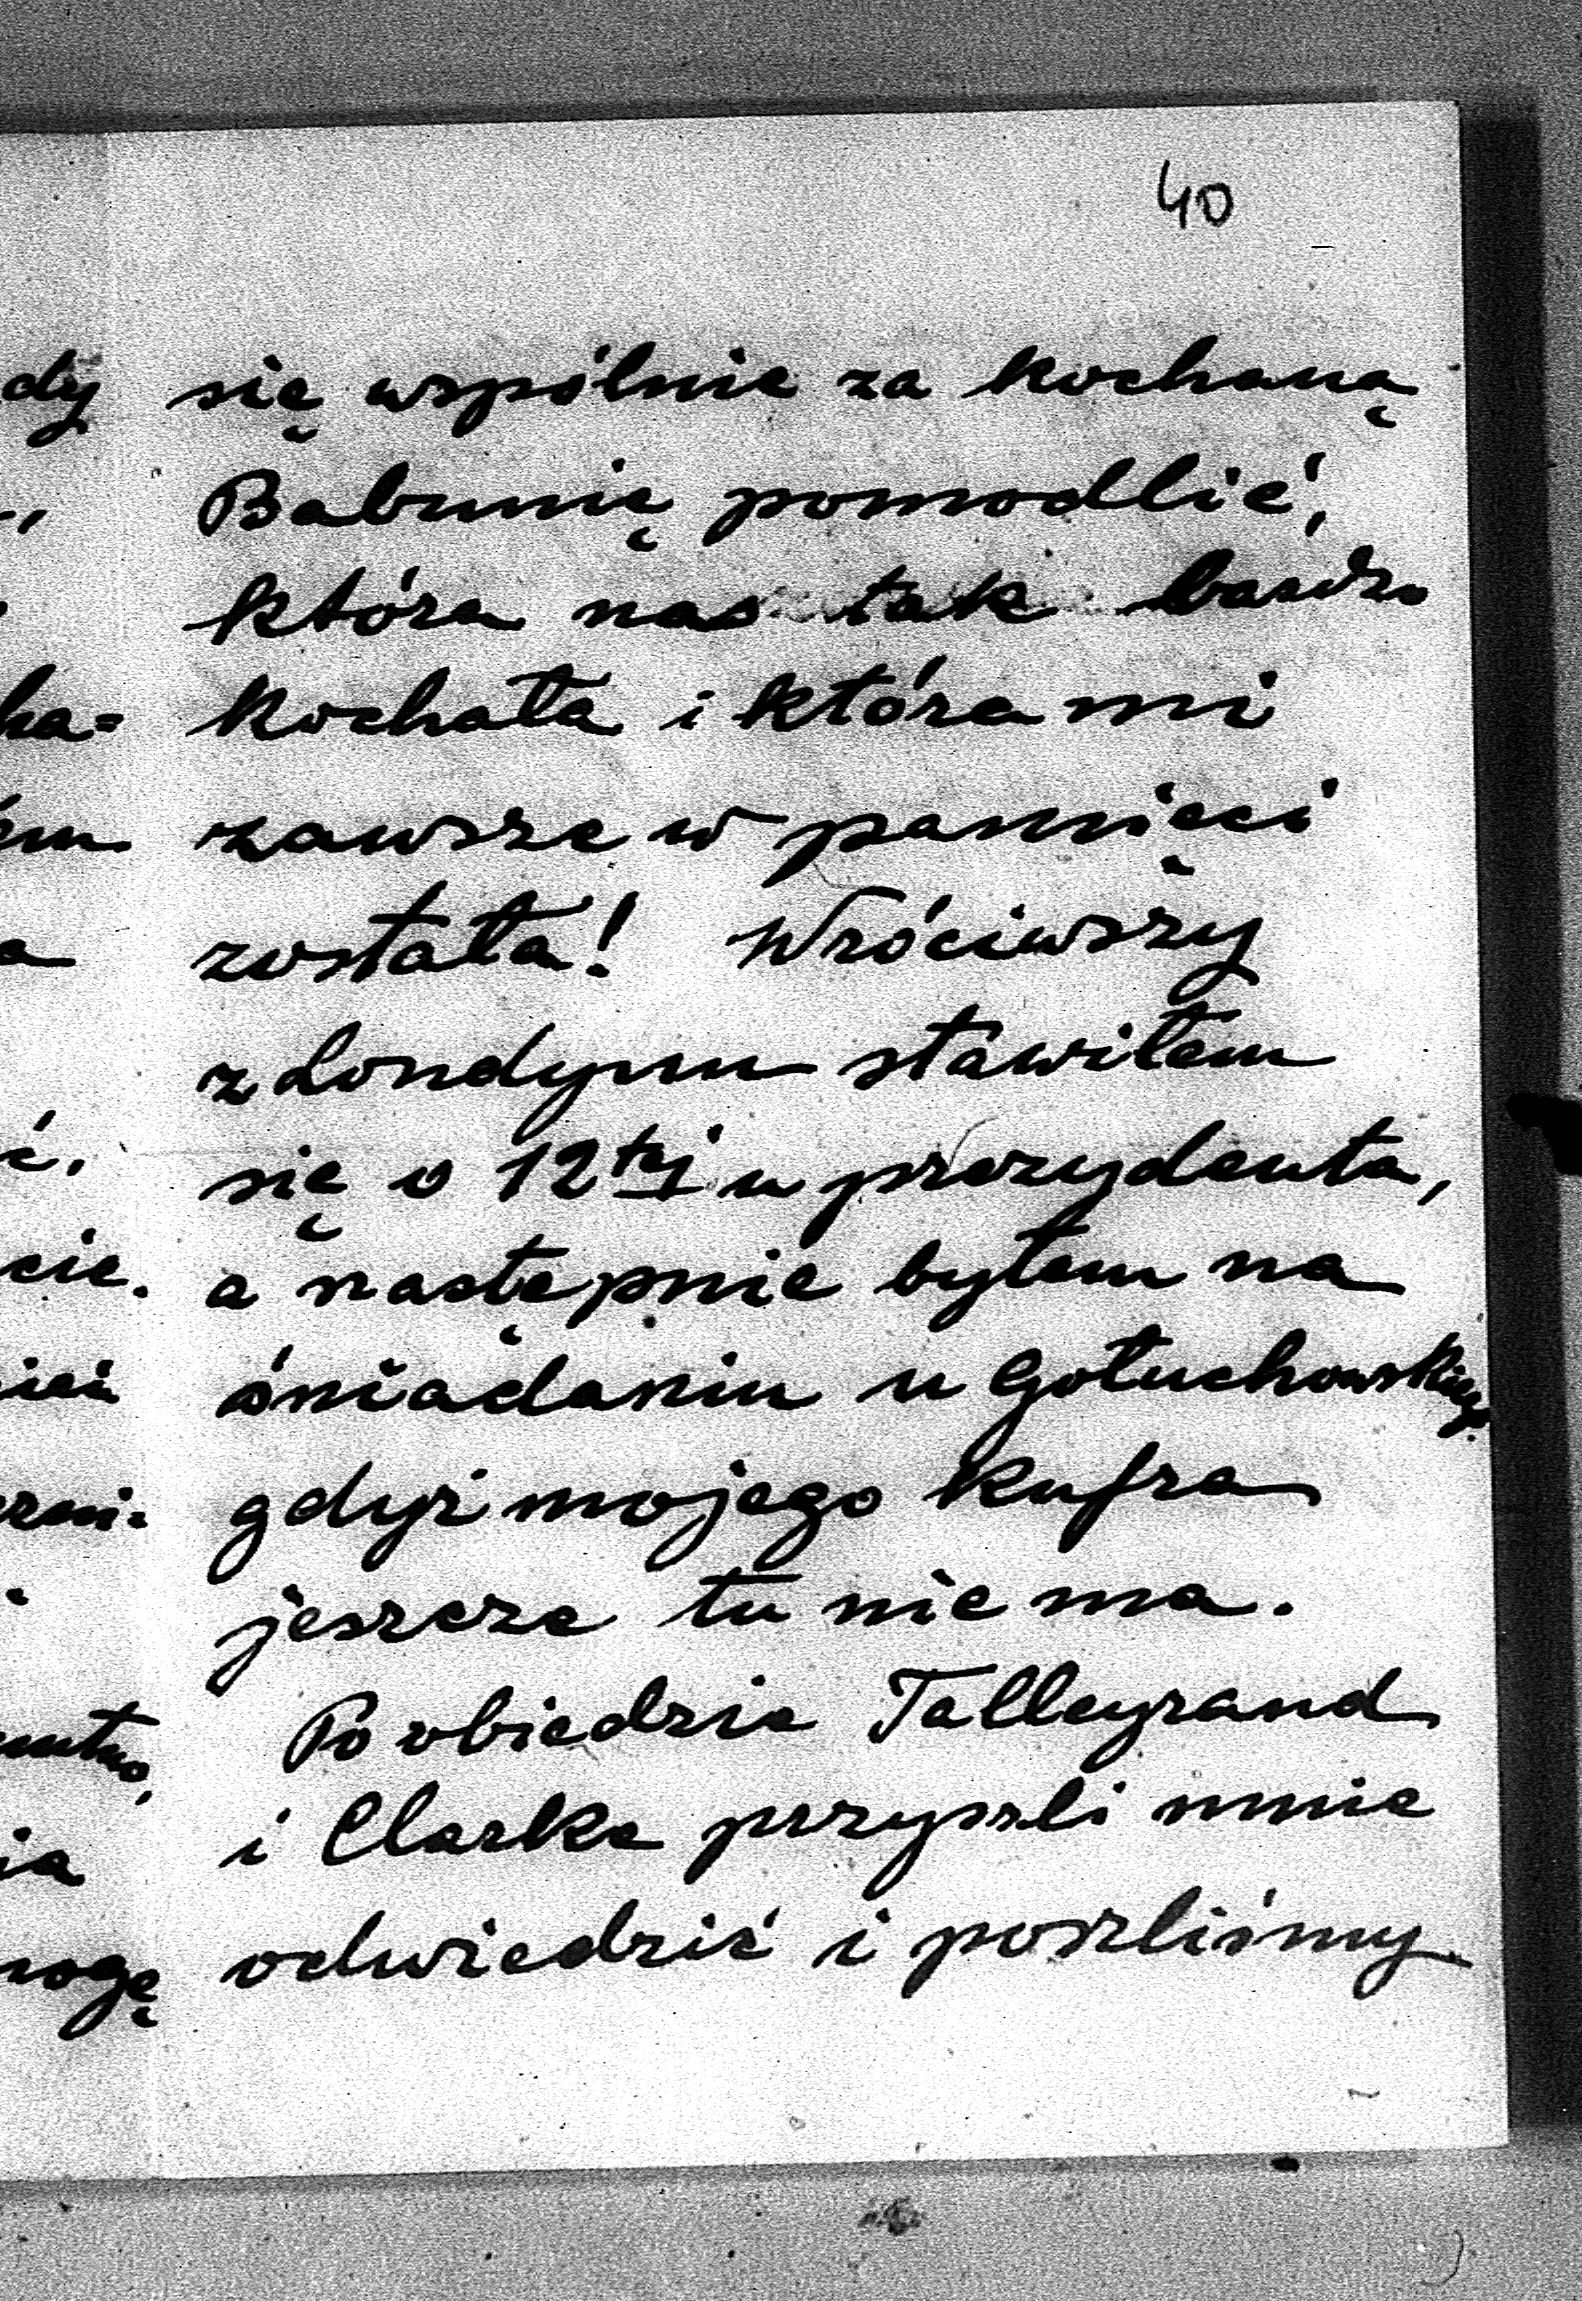 40
się wspólnie za kochaną
Babunię pomodlić,
która nas tak bardzo
kochała i która mi
zawsze w pamięci
została! Wróciwszy
z Londynu stawiłem
się o 12tej u prezydenta,
a następnie byłem na
śniadaniu u Gołuchowskiego,
gdyż mojego kufra
jeszcze tu nie ma.
Po obiedzie Talleyrand
i Clarke przyszli mnie
odwiedzić i poszliśmy